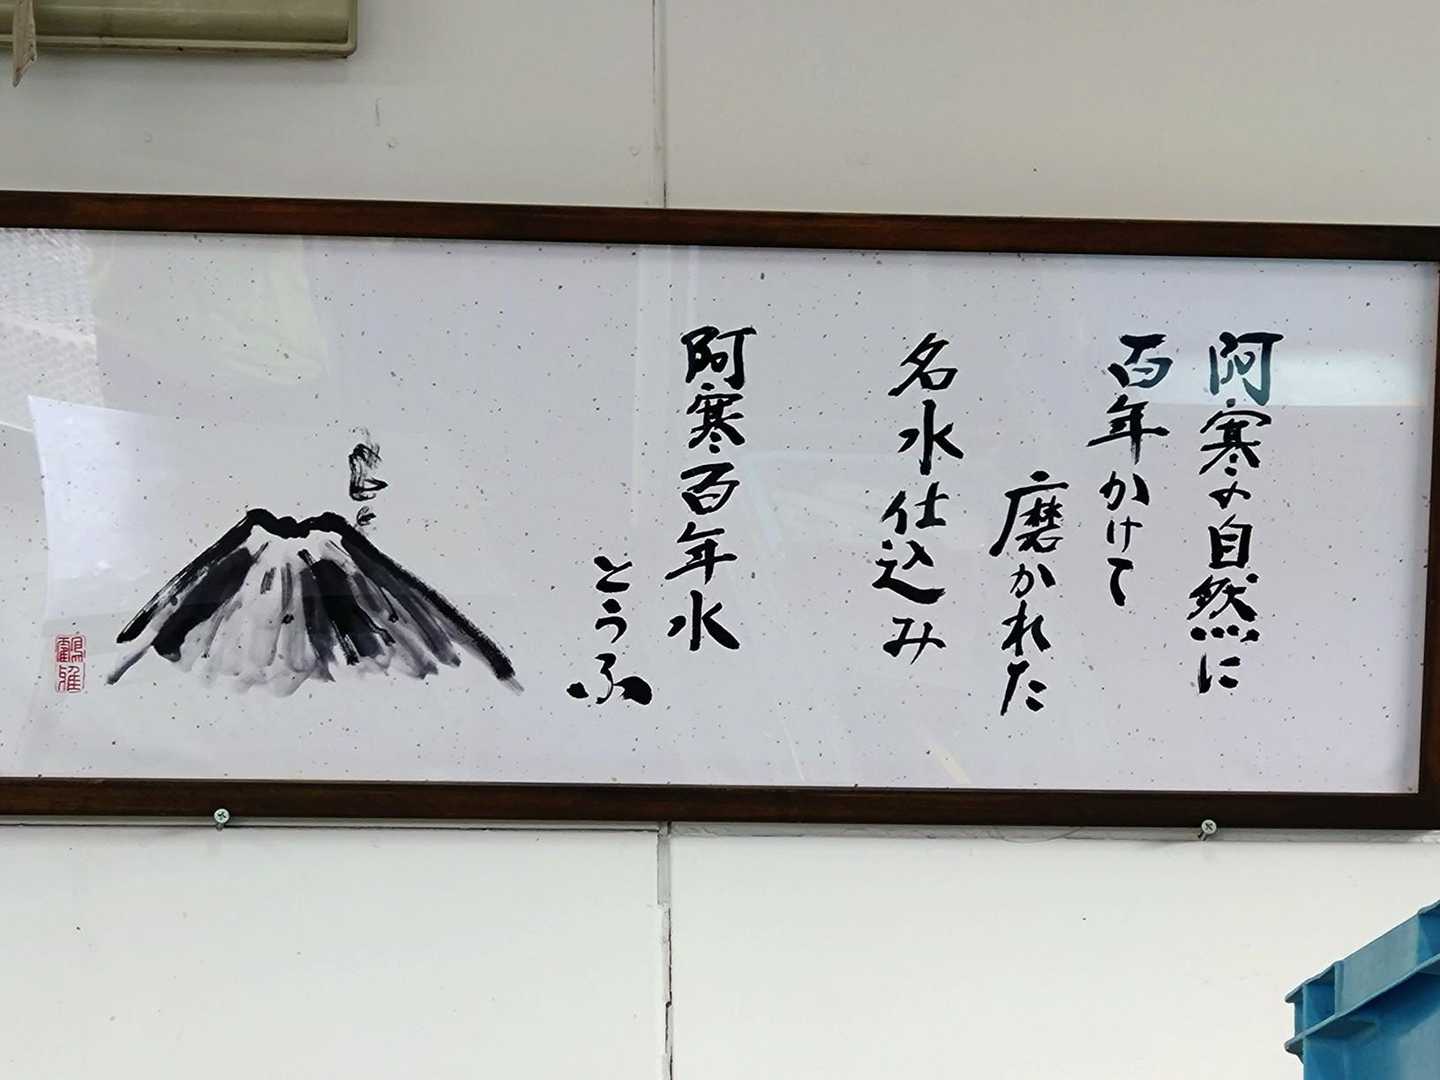 阿寒の自然に
百年かけて
磨かれた
名水仕込み
阿寒百年水
とうふ